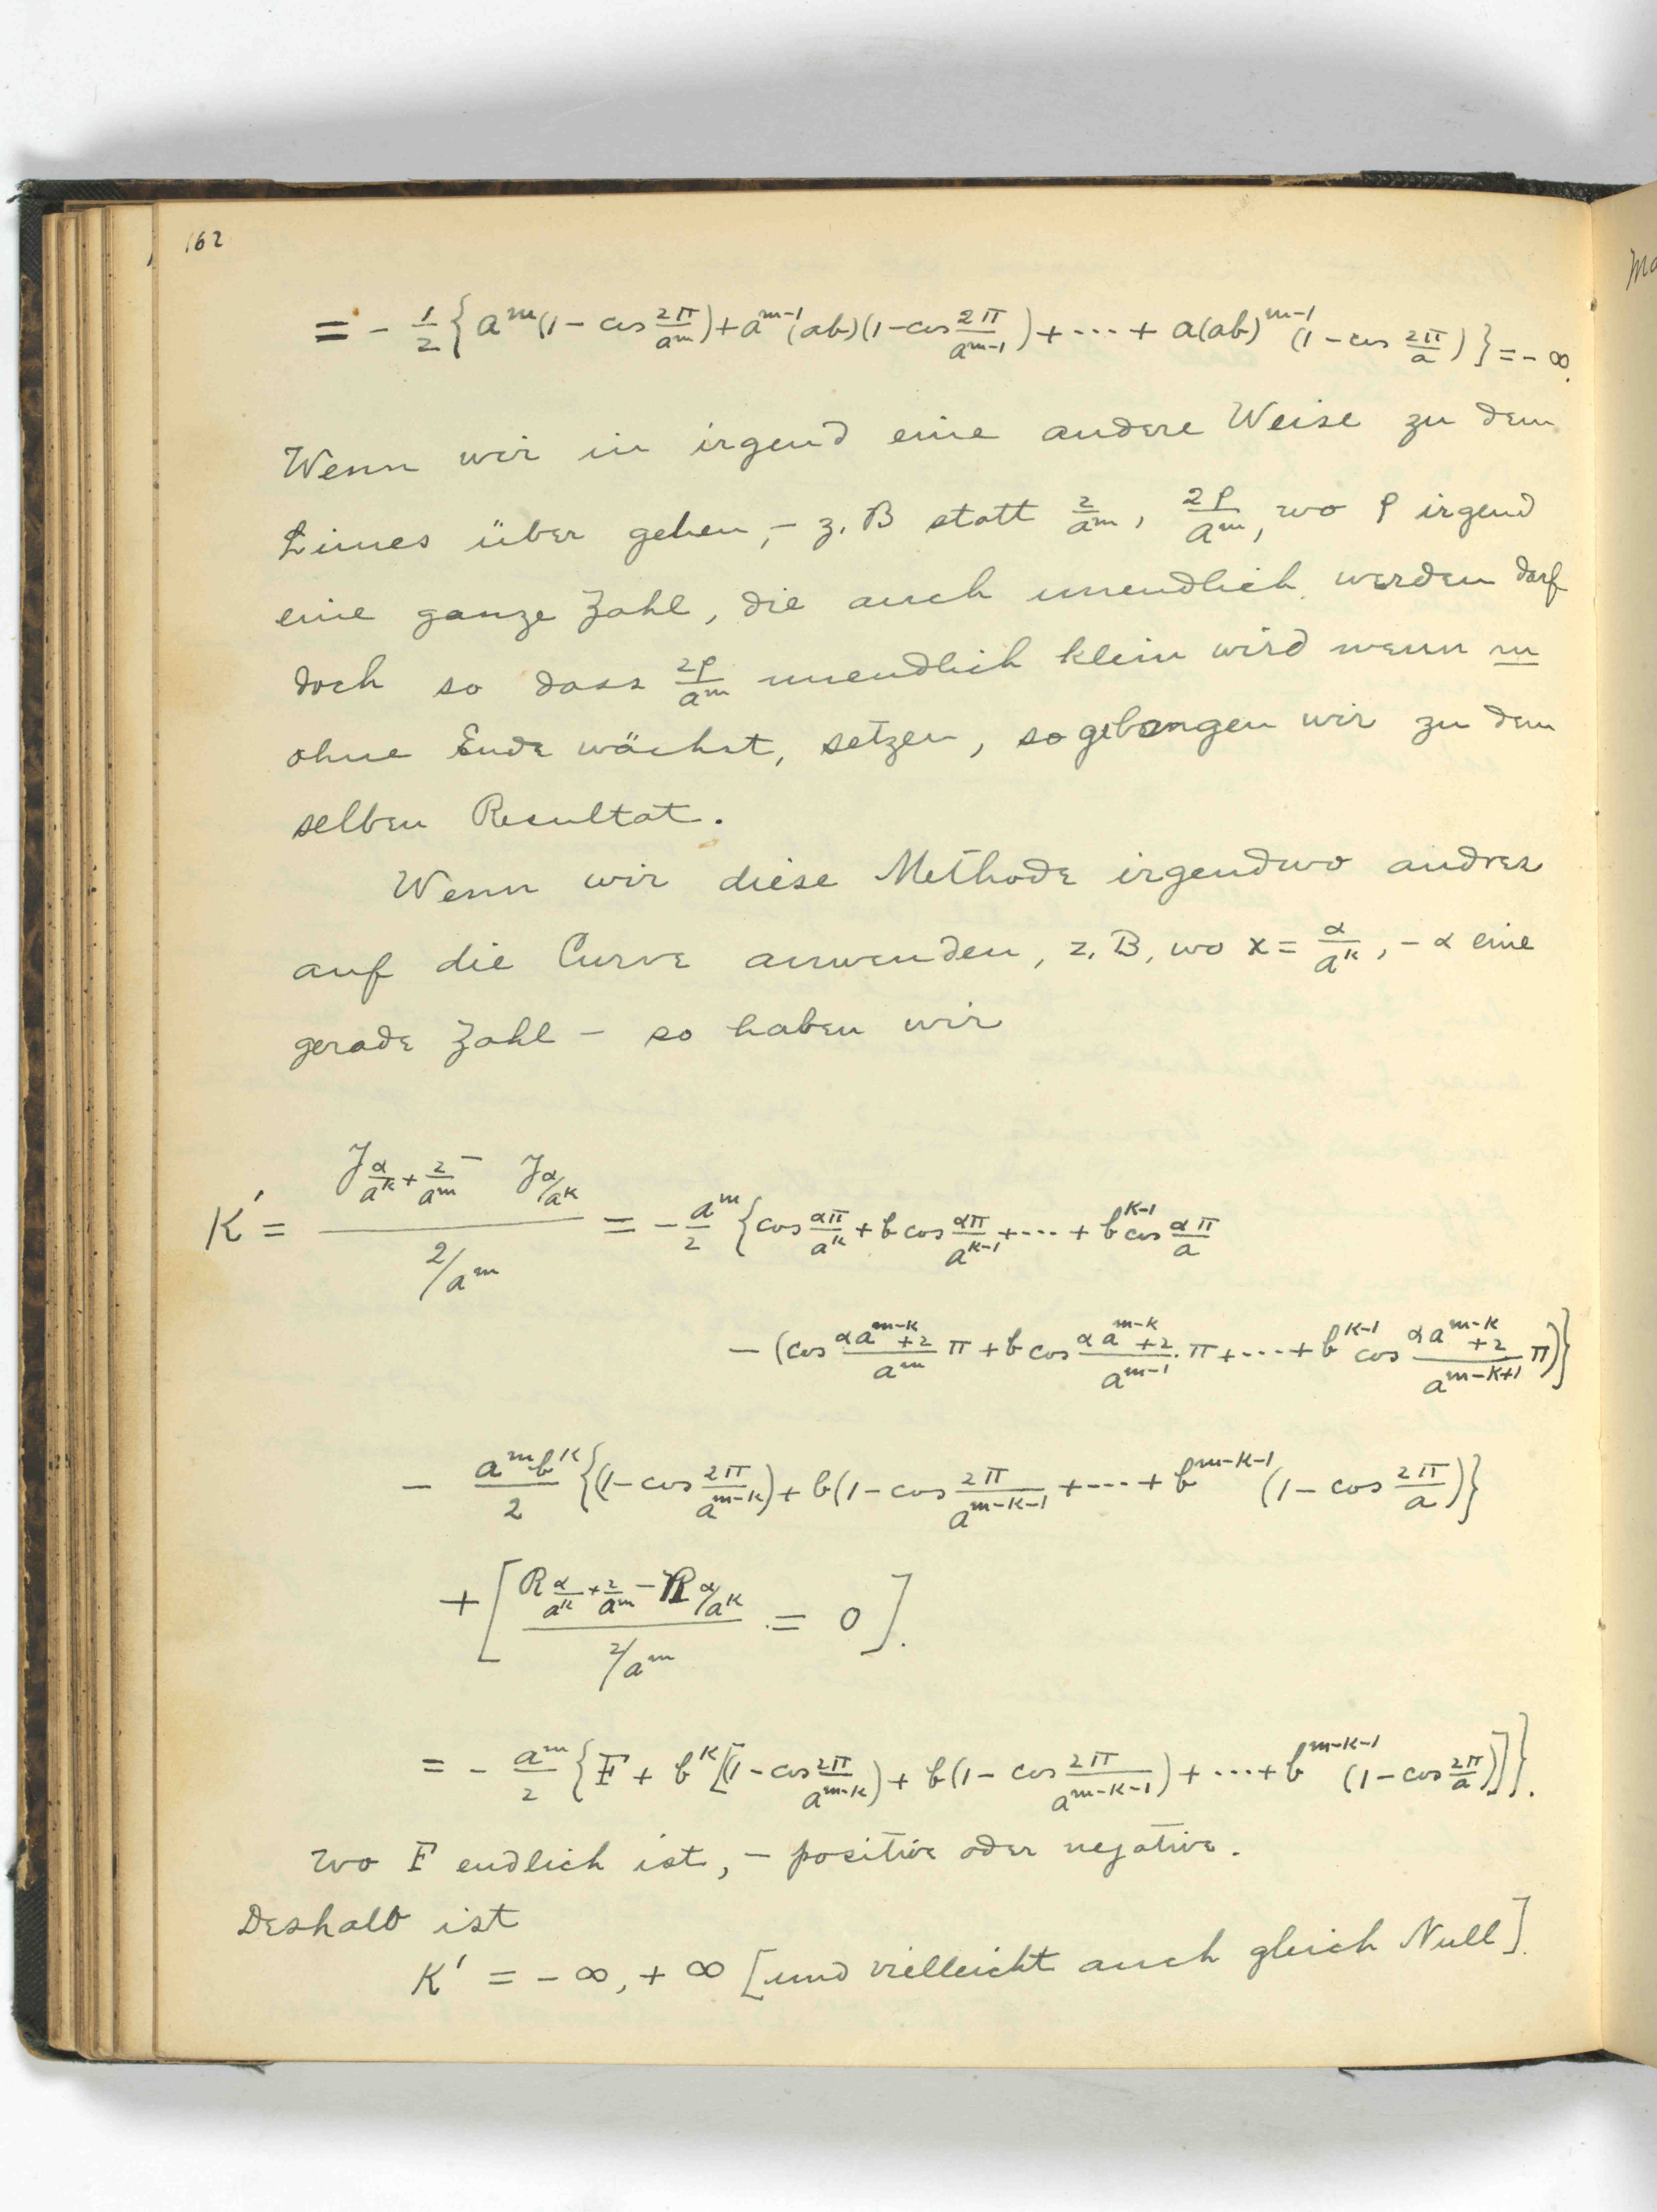 162
= - 1/2 { a^m (1 - cos 2π/a^m) + a^{m-1} (ab) (1 - cos 2π/a^{m-1}) + ··· + a(ab)^{m-1} (1 - cos 2π/a) } = - ∞.
Wenn wir in irgend eine andere Weise zu dem
Limes über gehen, – z. B statt 2/a^m, 2ρ/a^m, wo ρ irgend
eine ganze Zahl, die auch unendlich werden darf
doch so dass 2ρ/a^m unendlich klein wird wenn m
ohne Ende wächst, setzen, so gelangen wir zu dem
selben Resultat.
Wenn wir diese Methode irgendwo andres
auf die Curve anwenden, z. B, wo x = α/a^k, – α eine
gerade Zahl – so haben wir
K' = (J_{α/a^k + 2/a^m} - J_{α/a^k}) / (2/a^m) = - a^m/2 { cos απ/a^k + b cos απ/a^{k-1} + ··· + b^{k-1} cos απ/a
- (cos (αa^{m-k}+2)/a^m π + b cos (αa^{m-k}+2)/a^{m-1} · π + ··· + b^{k-1} cos (αa^{m-k}+2)/a^{m-k+1} π) }
- a^m b^k/2 { (1 - cos 2π/a^{m-k}) + b(1 - cos 2π/a^{m-k-1} + ··· + b^{m-k-1} (1 - cos 2π/a) }
+ [ (R_{α/a^k + 2/a^m} - R_{α/a^k}) / (2/a^m) = 0 ].
= - a^m/2 { F + b^k [(1 - cos 2π/a^{m-k}) + b(1 - cos 2π/a^{m-k-1}) + ··· + b^{m-k-1} (1 - cos 2π/a)] }.
wo F endlich ist, – positive oder negative.
Deshalb ist
K' = - ∞, + ∞ [und vielleicht auch gleich Null].